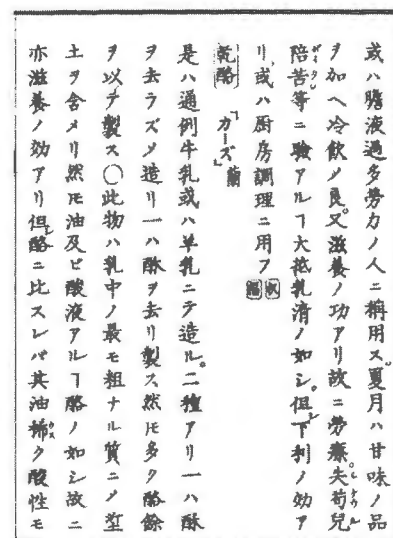 或ハ膽液過多勞力ノ人ニ稱用ス。夏月ハ甘味ノ品
ヲ加ヘ冷飲〆良。又滋養ノ功アリ故ニ勞瘵。失苟兒
陪苦等ニ驗アルヿ大抵乳清ノ如シ。但下利ノ効ア
リ。或ハ厨房調理ニ用フ
乾酪 「カーズ」蘭
是ハ通例牛乳或ハ羊乳ニテ造ル。二種アリ一ハ酥
ヲ去ラズ〆造リ一ハ酥ヲ去リ製ス然𪜈多ク酪餘
ヲ以テ製ス〇此物ハ乳中ノ最モ粗ナル質ニ〆堊
土ヲ含メリ然𪜈油及ビ酸液アルヿ酪ノ如シ故ニ
亦滋養ノ効アリ但シ酪ニ比スレバ其油稀ク酸性モ